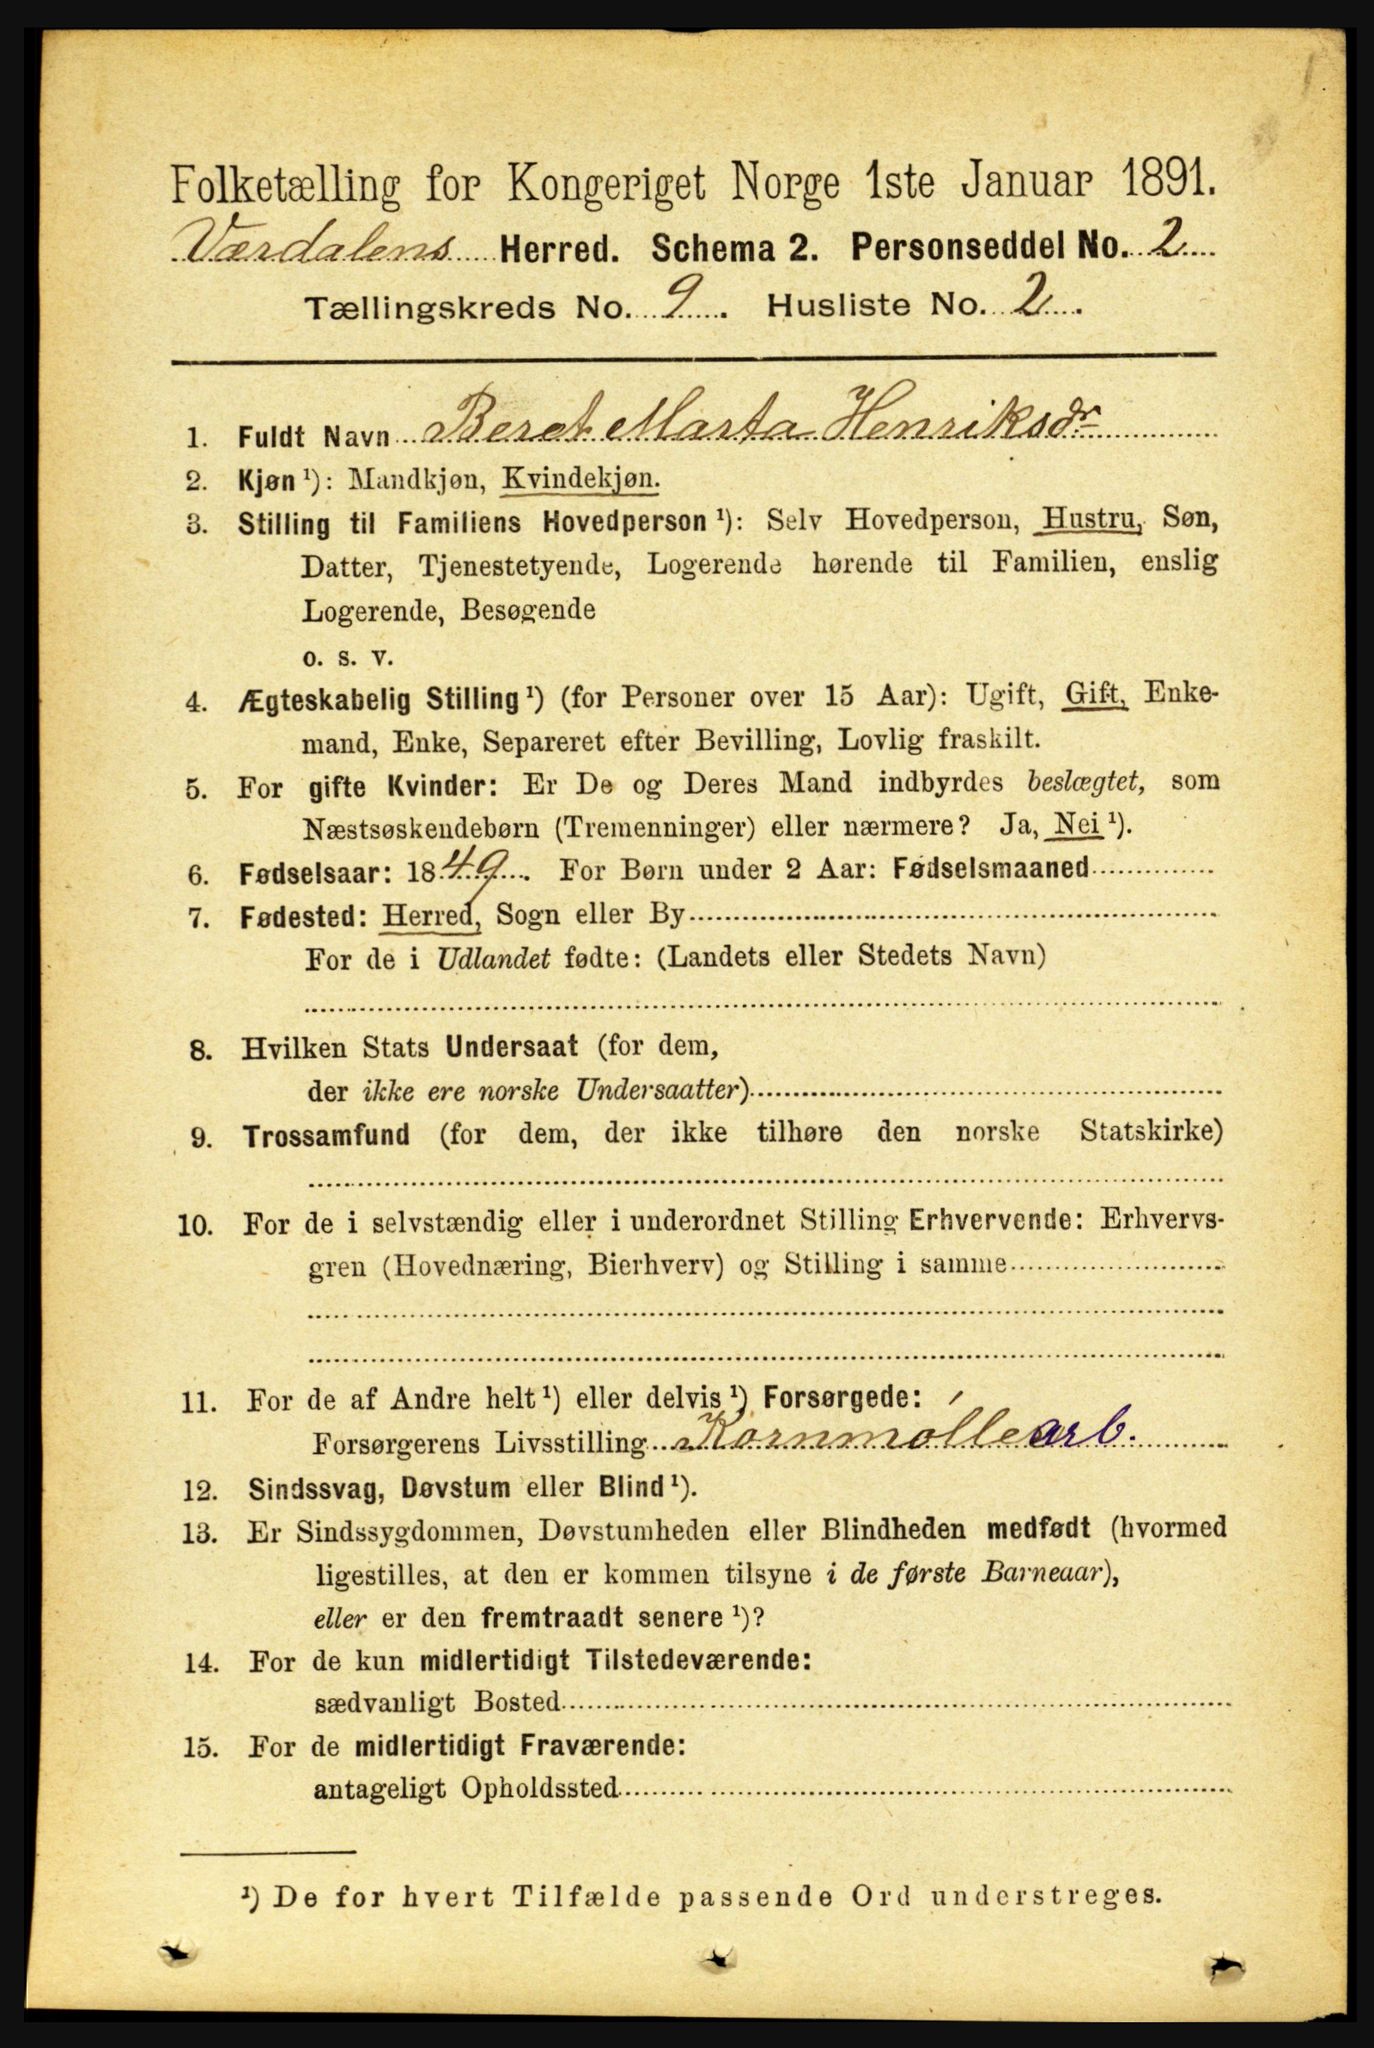 Folketælling for Kongeriget Norge 1ste Januar 1891.
Værdalens Herred. Schema 2. Personseddel No. 2
Tællingskreds No. 9. Husliste No. 2.
1. Fuldt Navn Beret Marta Henriksdr
2. Kjøn ¹): Mandkjøn, Kvindekjøn.
3. Stilling til Familiens Hovedperson ¹): Selv Hovedperson, Hustru, Søn,
Datter, Tjenestetyende, Logerende hørende til Familien, enslig
Logerende, Besøgende
o. s. v.
4. Ægteskabelig Stilling ¹) (for Personer over 15 Aar): Ugift, Gift, Enke-
mand, Enke, Separeret efter Bevilling, Lovlig fraskilt.
5. For gifte Kvinder: Er De og Deres Mand indbyrdes beslægtet, som
Næstsøskendebørn (Tremenninger) eller nærmere? Ja, Nei ¹).
6. Fødselsaar: 1849. For Børn under 2 Aar: Fødselsmaaned
7. Fødested: Herred, Sogn eller By
For de i Udlandet fødte: (Landets eller Stedets Navn)
8. Hvilken Stats Undersaat (for dem,
der ikke ere norske Undersaatter)
9. Trossamfund (for dem, der ikke tilhøre den norske Statskirke)
10. For de i selvstændig eller i underordnet Stilling Erhvervende: Erhvervs-
gren (Hovednæring, Bierhverv) og Stilling i samme
11. For de af Andre helt ¹) eller delvis ¹) Forsørgede:
Forsørgerens Livsstilling Kornmøllearb.
12. Sindssvag, Døvstum eller Blind ¹).
13. Er Sindssygdommen, Døvstumheden eller Blindheden medfødt (hvormed
ligestilles, at den er kommen tilsyne i de første Barneaar),
eller er den fremtraadt senere ¹)?
14. For de kun midlertidigt Tilstedeværende:
sædvanligt Bosted
15. For de midlertidigt Fraværende:
antageligt Opholdssted
¹) De for hvert Tilfælde passende Ord understreges.